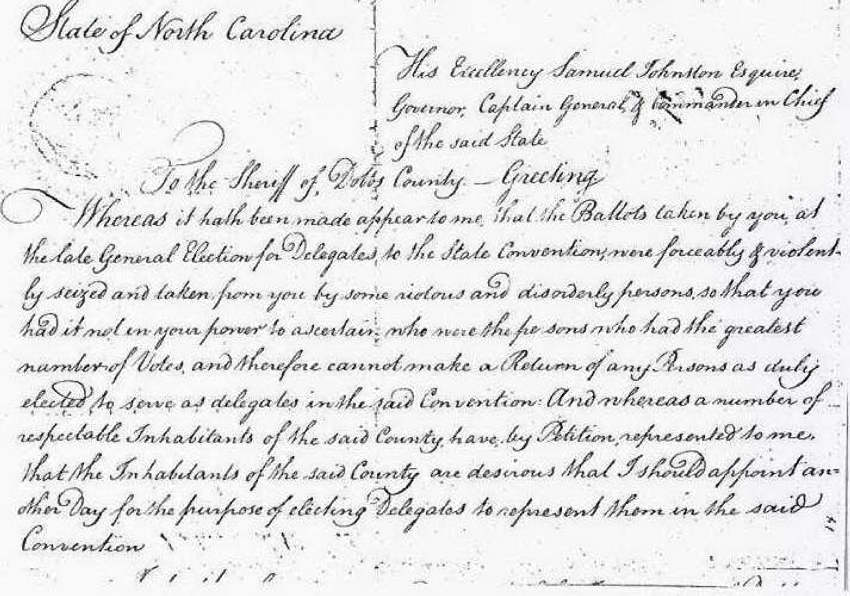 State of North Carolina
His Excellency Samuel Johnston Esquire,
Governor, Captain General, & Commander in Chief
of the said State
To the Sheriff of Dobbs County — Greeting
Whereas it hath been made appear to me, that the Ballots taken by you, at
the late General Election for Delegates, to the State Convention, were forceably & violent-
ly seized and taken from you by some riotous and disorderly persons, so that you
had it not in your power to ascertain who were the pe sons who had the greatest
number of Votes, and therefore cannot make a Return of any Persons as duly
elected to serve as delegates in the said Convention: And whereas a number of
respectable Inhabitants of the said County, have, by Petition, represented to me,
that the Inhabitants of the said County are desirous that I should appoint an=
other Day for the purpose of electing Delegates to represent them in the said
Convention